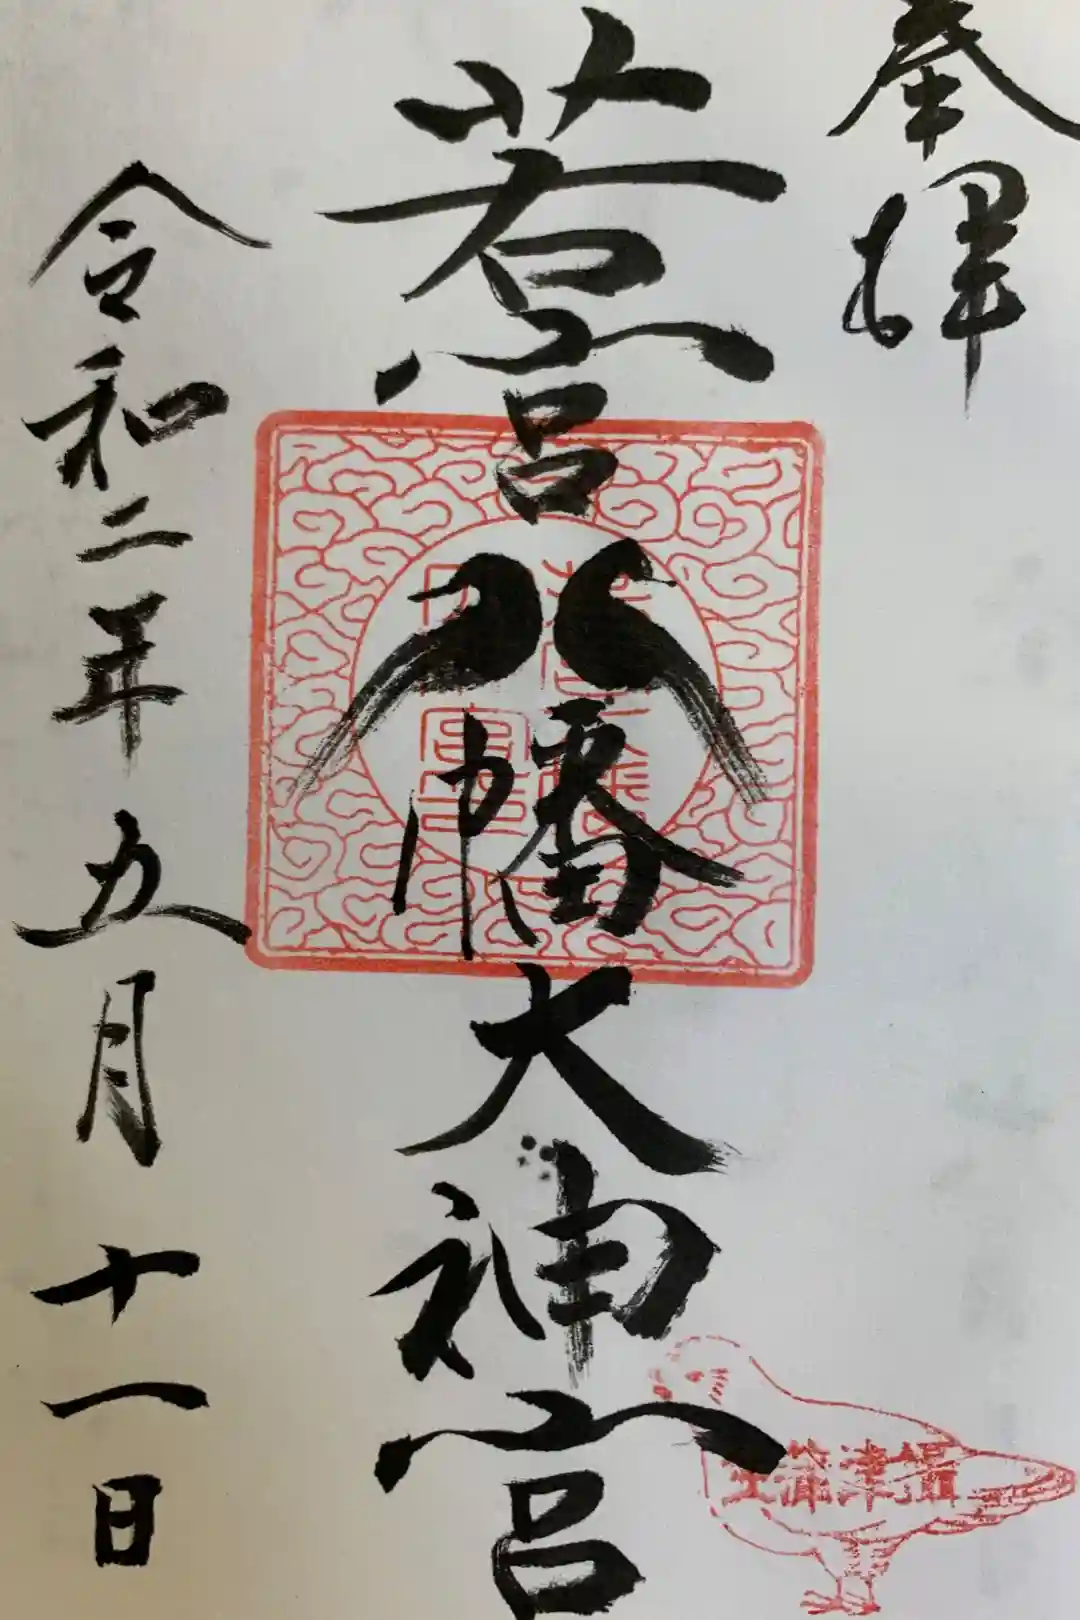 奉拝
若宮八幡大神宮
令和二年五月十一日